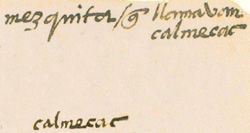 mezquitas / q̃ llamavam
calmecac
calmecac